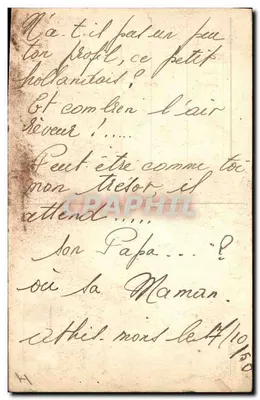 N'a-t-il pas un peu
ton profil, ce petit
hollandais ?
Et combien l'air
rêveur !.....
Peut-être comme toi
mon trésor, il
attend.....
son Papa....?
où sa Maman.
athis-mons le 17/10
/50